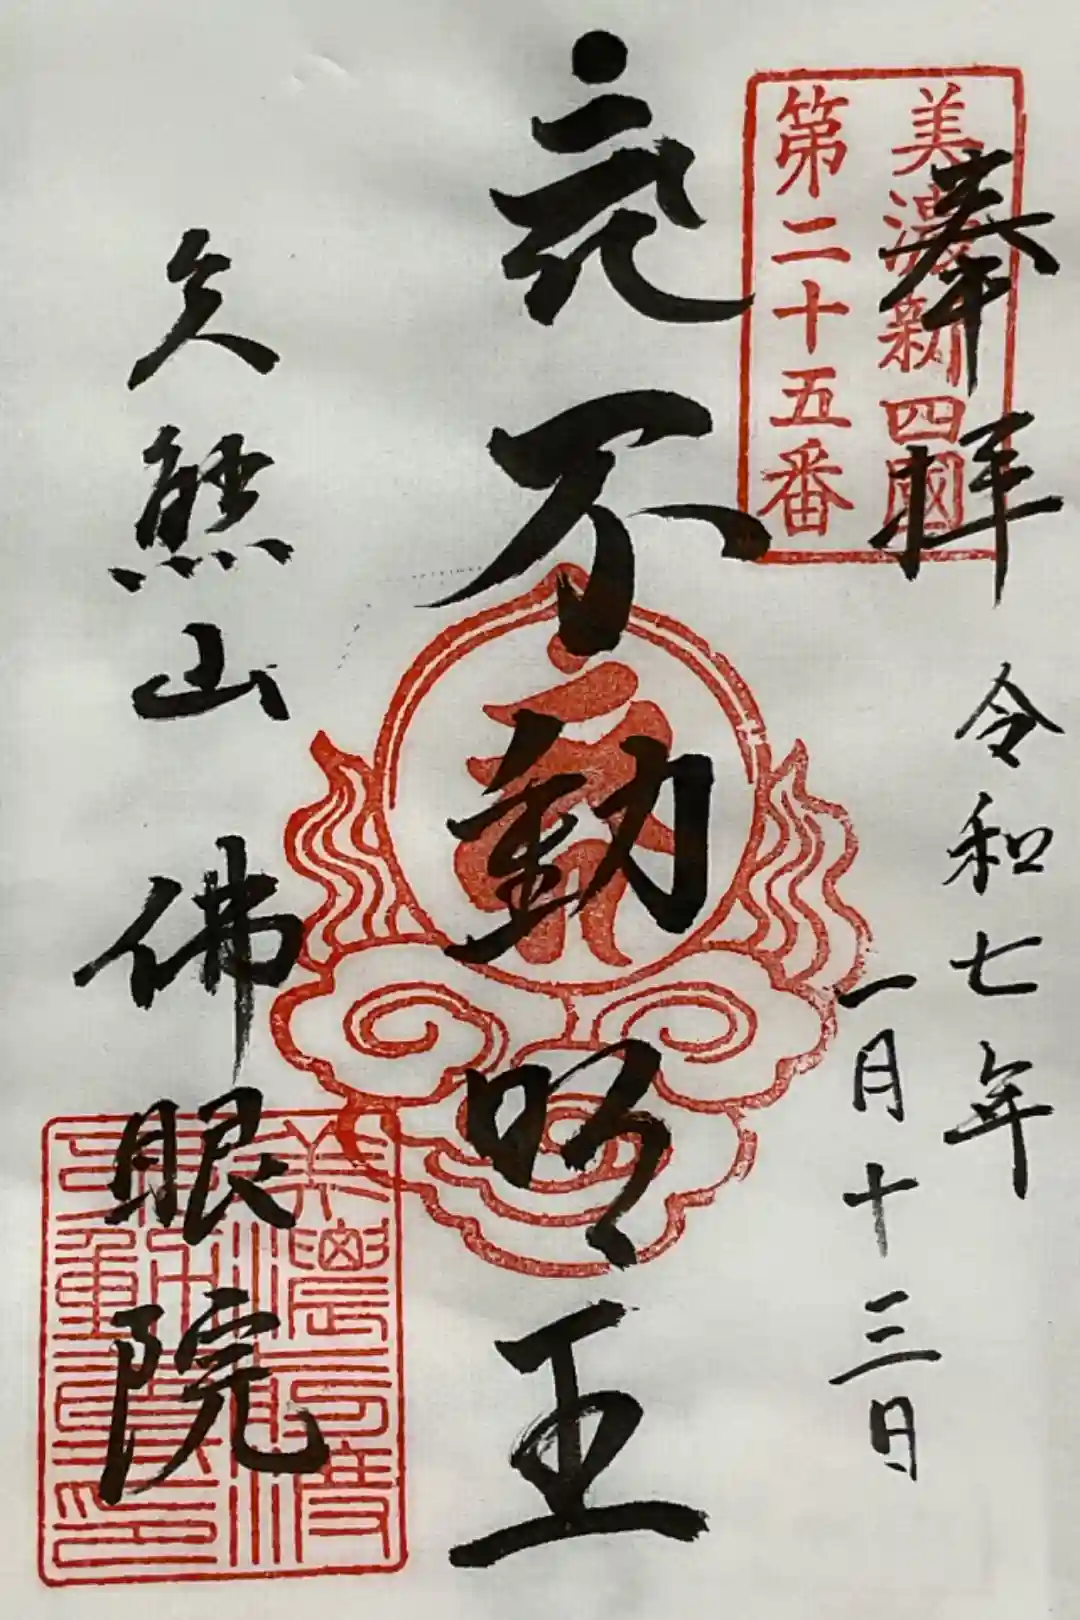 奉拝
美濃新四國
第二十五番
令和七年
一月十三日
不動明王
久熊山
佛眼院